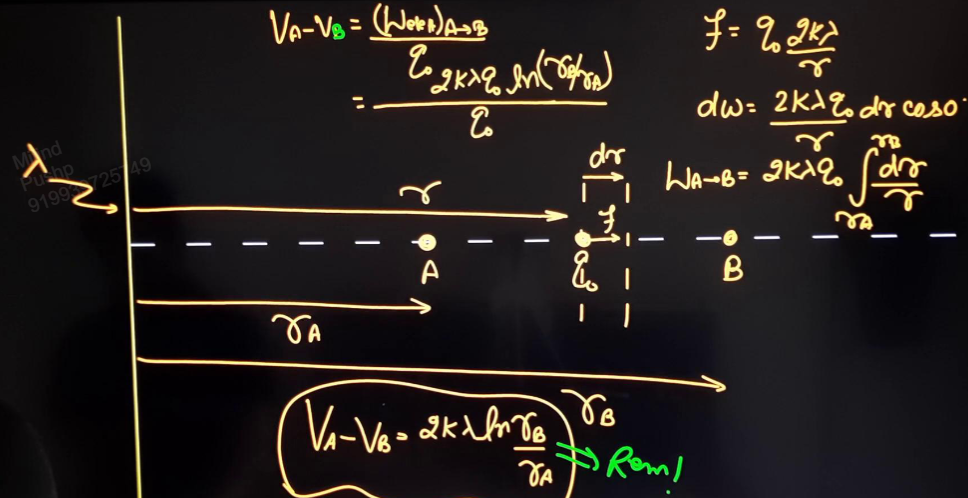 V_A-V_B = (W_elec)_A→B / q₀
= 2Kλq₀ ln(r_B/r_A) / q₀
f = q₀ 2Kλ/r
dw = 2Kλq₀/r dr cos0°
W_A→B = 2Kλq₀ ∫_{r_A}^{r_B} dr/r
λ
919931725749
r
dr
f
A
q₀
B
r_A
r_B
V_A-V_B = 2Kλ ln r_B/r_A ⇒ Rem!